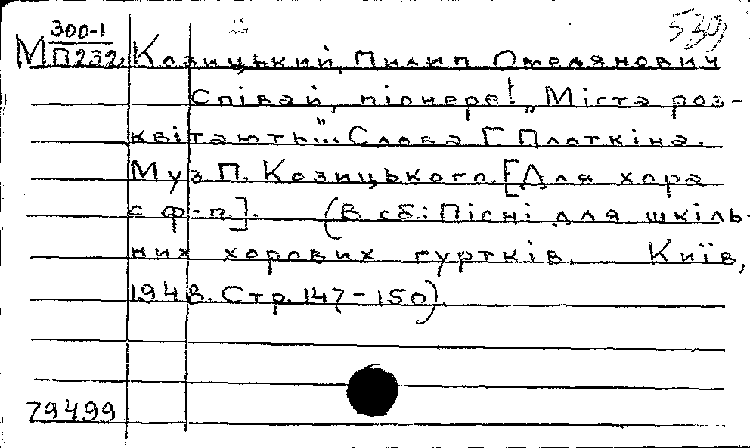 300-1
М П232. Козицький, Пилип Омелянович
Співай, піонере! „Міста роз-
квітають"... Слова Г. Плоткіна.
Муз. П. Козицького. [Для хора
с ф-п]. (В сб: Пісні для шкіль-
них хорових гуртків. Київ,
1948. Стр. 147-150).
79499